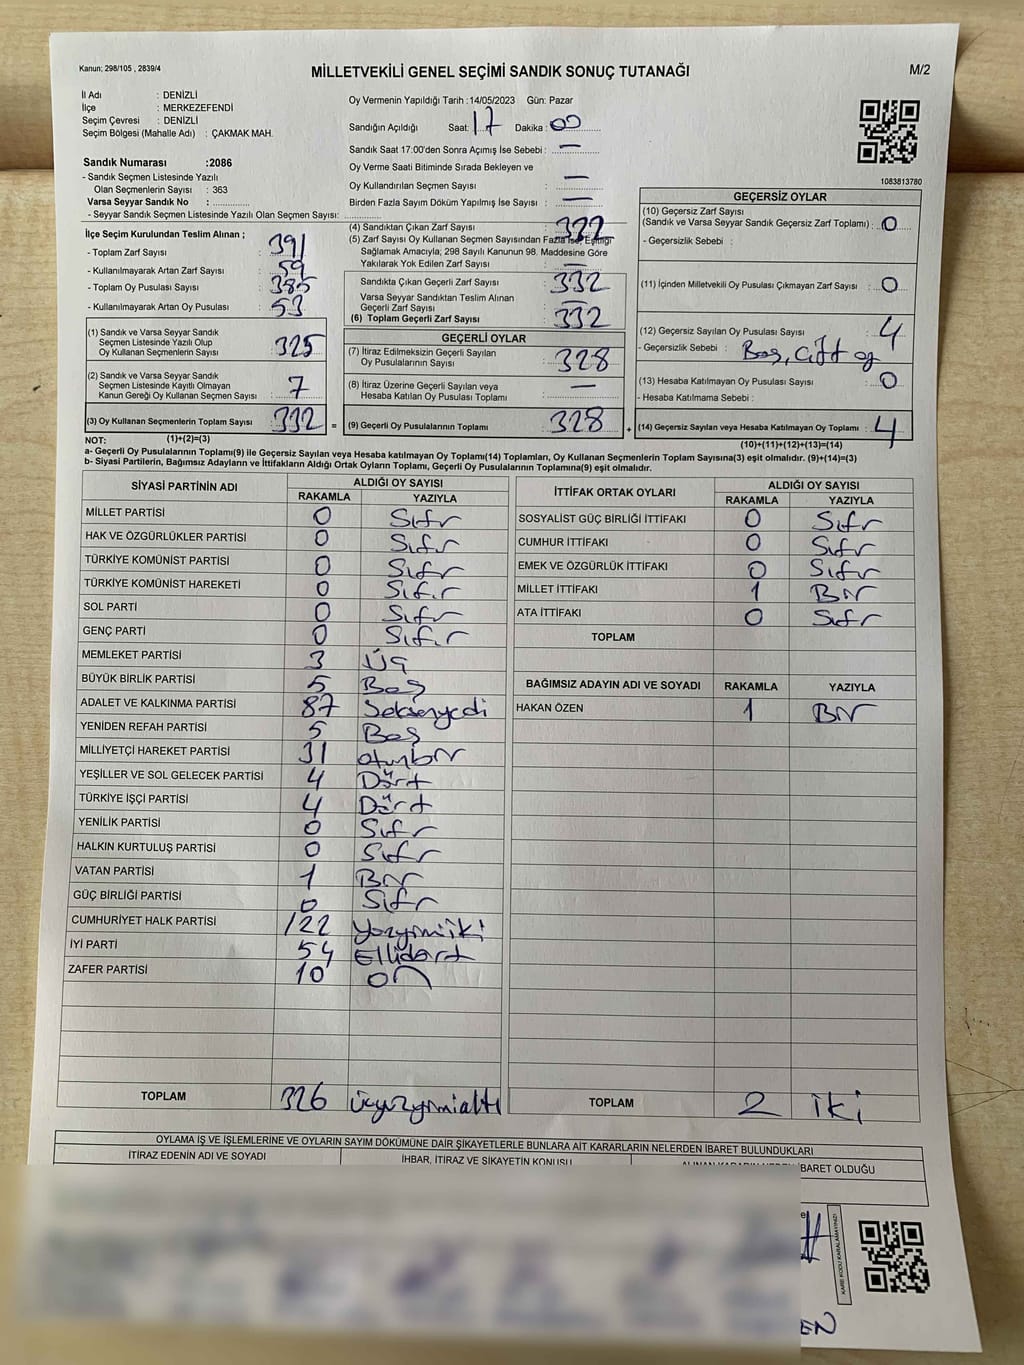 Kanun; 298/105 , 2839/4
MİLLETVEKİLİ GENEL SEÇİMİ SANDIK SONUÇ TUTANAĞI
M/2
İl Adı : DENİZLİ
İlçe : MERKEZEFENDİ
Seçim Çevresi : DENİZLİ
Seçim Bölgesi (Mahalle Adı) : ÇAKMAK MAH.
Sandık Numarası :2086
- Sandık Seçmen Listesinde Yazılı
Olan Seçmenlerin Sayısı : 363
Varsa Seyyar Sandık No :
- Seyyar Sandık Seçmen Listesinde Yazılı Olan Seçmen Sayısı:
Oy Vermenin Yapıldığı Tarih :14/05/2023 Gün: Pazar
Sandığın Açıldığı Saat: 17 Dakika : 00
Sandık Saat 17:00'den Sonra Açımış İse Sebebi : —
Oy Verme Saati Bitiminde Sırada Bekleyen ve
Oy Kullandırılan Seçmen Sayısı : —
Birden Fazla Sayım Döküm Yapılmış İse Sayısı : —
1083813780
İlçe Seçim Kurulundan Teslim Alınan ;
- Toplam Zarf Sayısı : 391
- Kullanılmayarak Artan Zarf Sayısı : 59
- Toplam Oy Pusulası Sayısı : 385
- Kullanılmayarak Artan Oy Pusulası : 53
(1) Sandık ve Varsa Seyyar Sandık
Seçmen Listesinde Yazılı Olup
Oy Kullanan Seçmenlerin Sayısı : 325
(2) Sandık ve Varsa Seyyar Sandık
Seçmen Listesinde Kayıtlı Olmayan
Kanun Gereği Oy Kullanan Seçmen Sayısı : 7
(3) Oy Kullanan Seçmenlerin Toplam Sayısı : 332
(1)+(2)=(3)
(4) Sandıktan Çıkan Zarf Sayısı : 332
(5) Zarf Sayısı Oy Kullanan Seçmen Sayısından Fazla İse, Eşitliği
Sağlamak Amacıyla; 298 Sayılı Kanunun 98. Maddesine Göre
Yakılarak Yok Edilen Zarf Sayısı : —
Sandıkta Çıkan Geçerli Zarf Sayısı : 332
Varsa Seyyar Sandıktan Teslim Alınan
Geçerli Zarf Sayısı : —
(6) Toplam Geçerli Zarf Sayısı : 332
GEÇERLİ OYLAR
(7) İtiraz Edilmeksizin Geçerli Sayılan
Oy Pusulalarının Sayısı : 328
(8) İtiraz Üzerine Geçerli Sayılan veya
Hesaba Katılan Oy Pusulası Toplamı : —
= (9) Geçerli Oy Pusulalarının Toplamı : 328
GEÇERSİZ OYLAR
(10) Geçersiz Zarf Sayısı
(Sandık ve Varsa Seyyar Sandık Geçersiz Zarf Toplamı) : 0
- Geçersizlik Sebebi :
(11) İçinden Milletvekili Oy Pusulası Çıkmayan Zarf Sayısı : 0
(12) Geçersiz Sayılan Oy Pusulası Sayısı : 4
- Geçersizlik Sebebi : Boş, çift oy
(13) Hesaba Katılmayan Oy Pusulası Sayısı : 0
- Hesaba Katılmama Sebebi :
+ (14) Geçersiz Sayılan veya Hesaba Katılmayan Oy Toplamı : 4
(10)+(11)+(12)+(13)=(14)
NOT:
a- Geçerli Oy Pusulalarının Toplamı(9) ile Geçersiz Sayılan veya hesaba katılmayan Oy Toplamı(14) Toplamları, Oy Kullanan Seçmenlerin Toplam Sayısına(3) eşit olmalıdır. (9)+(14)=(3)
b- Siyasi Partilerin, Bağımsız Adayların ve İttifakların Aldığı Ortak Oyların Toplamı, Geçerli Oy Pusulalarının Toplamına(9) eşit olmalıdır.
SİYASİ PARTİNİN ADI ALDIĞI OY SAYISI
RAKAMLA YAZIYLA
MİLLET PARTİSİ 0 Sıfır
HAK VE ÖZGÜRLÜKLER PARTİSİ 0 Sıfır
TÜRKİYE KOMÜNİST PARTİSİ 0 Sıfır
TÜRKİYE KOMÜNİST HAREKETİ 0 Sıfır
SOL PARTİ 0 Sıfır
GENÇ PARTİ 0 Sıfır
MEMLEKET PARTİSİ 3 Üç
BÜYÜK BİRLİK PARTİSİ 5 Beş
ADALET VE KALKINMA PARTİSİ 87 Seksenyedi
YENİDEN REFAH PARTİSİ 5 Beş
MİLLİYETÇİ HAREKET PARTİSİ 31 otuzbir
YEŞİLLER VE SOL GELECEK PARTİSİ 4 Dört
TÜRKİYE İŞÇİ PARTİSİ 4 Dört
YENİLİK PARTİSİ 0 Sıfır
HALKIN KURTULUŞ PARTİSİ 0 Sıfır
VATAN PARTİSİ 1 Bir
GÜÇ BİRLİĞİ PARTİSİ 0 Sıfır
CUMHURİYET HALK PARTİSİ 122 Yüzyirmiiki
İYİ PARTİ 54 Ellidört
ZAFER PARTİSİ 10 on
TOPLAM 326 üçyüzyirmialtı
İTTİFAK ORTAK OYLARI ALDIĞI OY SAYISI
RAKAMLA YAZIYLA
SOSYALİST GÜÇ BİRLİĞİ İTTİFAKI 0 Sıfır
CUMHUR İTTİFAKI 0 Sıfır
EMEK VE ÖZGÜRLÜK İTTİFAKI 0 Sıfır
MİLLET İTTİFAKI 1 Bir
ATA İTTİFAKI 0 Sıfır
TOPLAM
BAĞIMSIZ ADAYIN ADI VE SOYADI RAKAMLA YAZIYLA
HAKAN ÖZEN 1 Bir
TOPLAM 2 iki
OYLAMA İŞ VE İŞLEMLERİNE VE OYLARIN SAYIM DÖKÜMÜNE DAİR ŞİKAYETLERLE BUNLARA AİT KARARLARIN NELERDEN İBARET BULUNDUKLARI
İTİRAZ EDENİN ADI VE SOYADI İHBAR, İTİRAZ VE ŞİKAYETİN KONUSU ALINAN KARARIN NEDEN İBARET OLDUĞU
KARE KODU KARALAMAYINIZ!